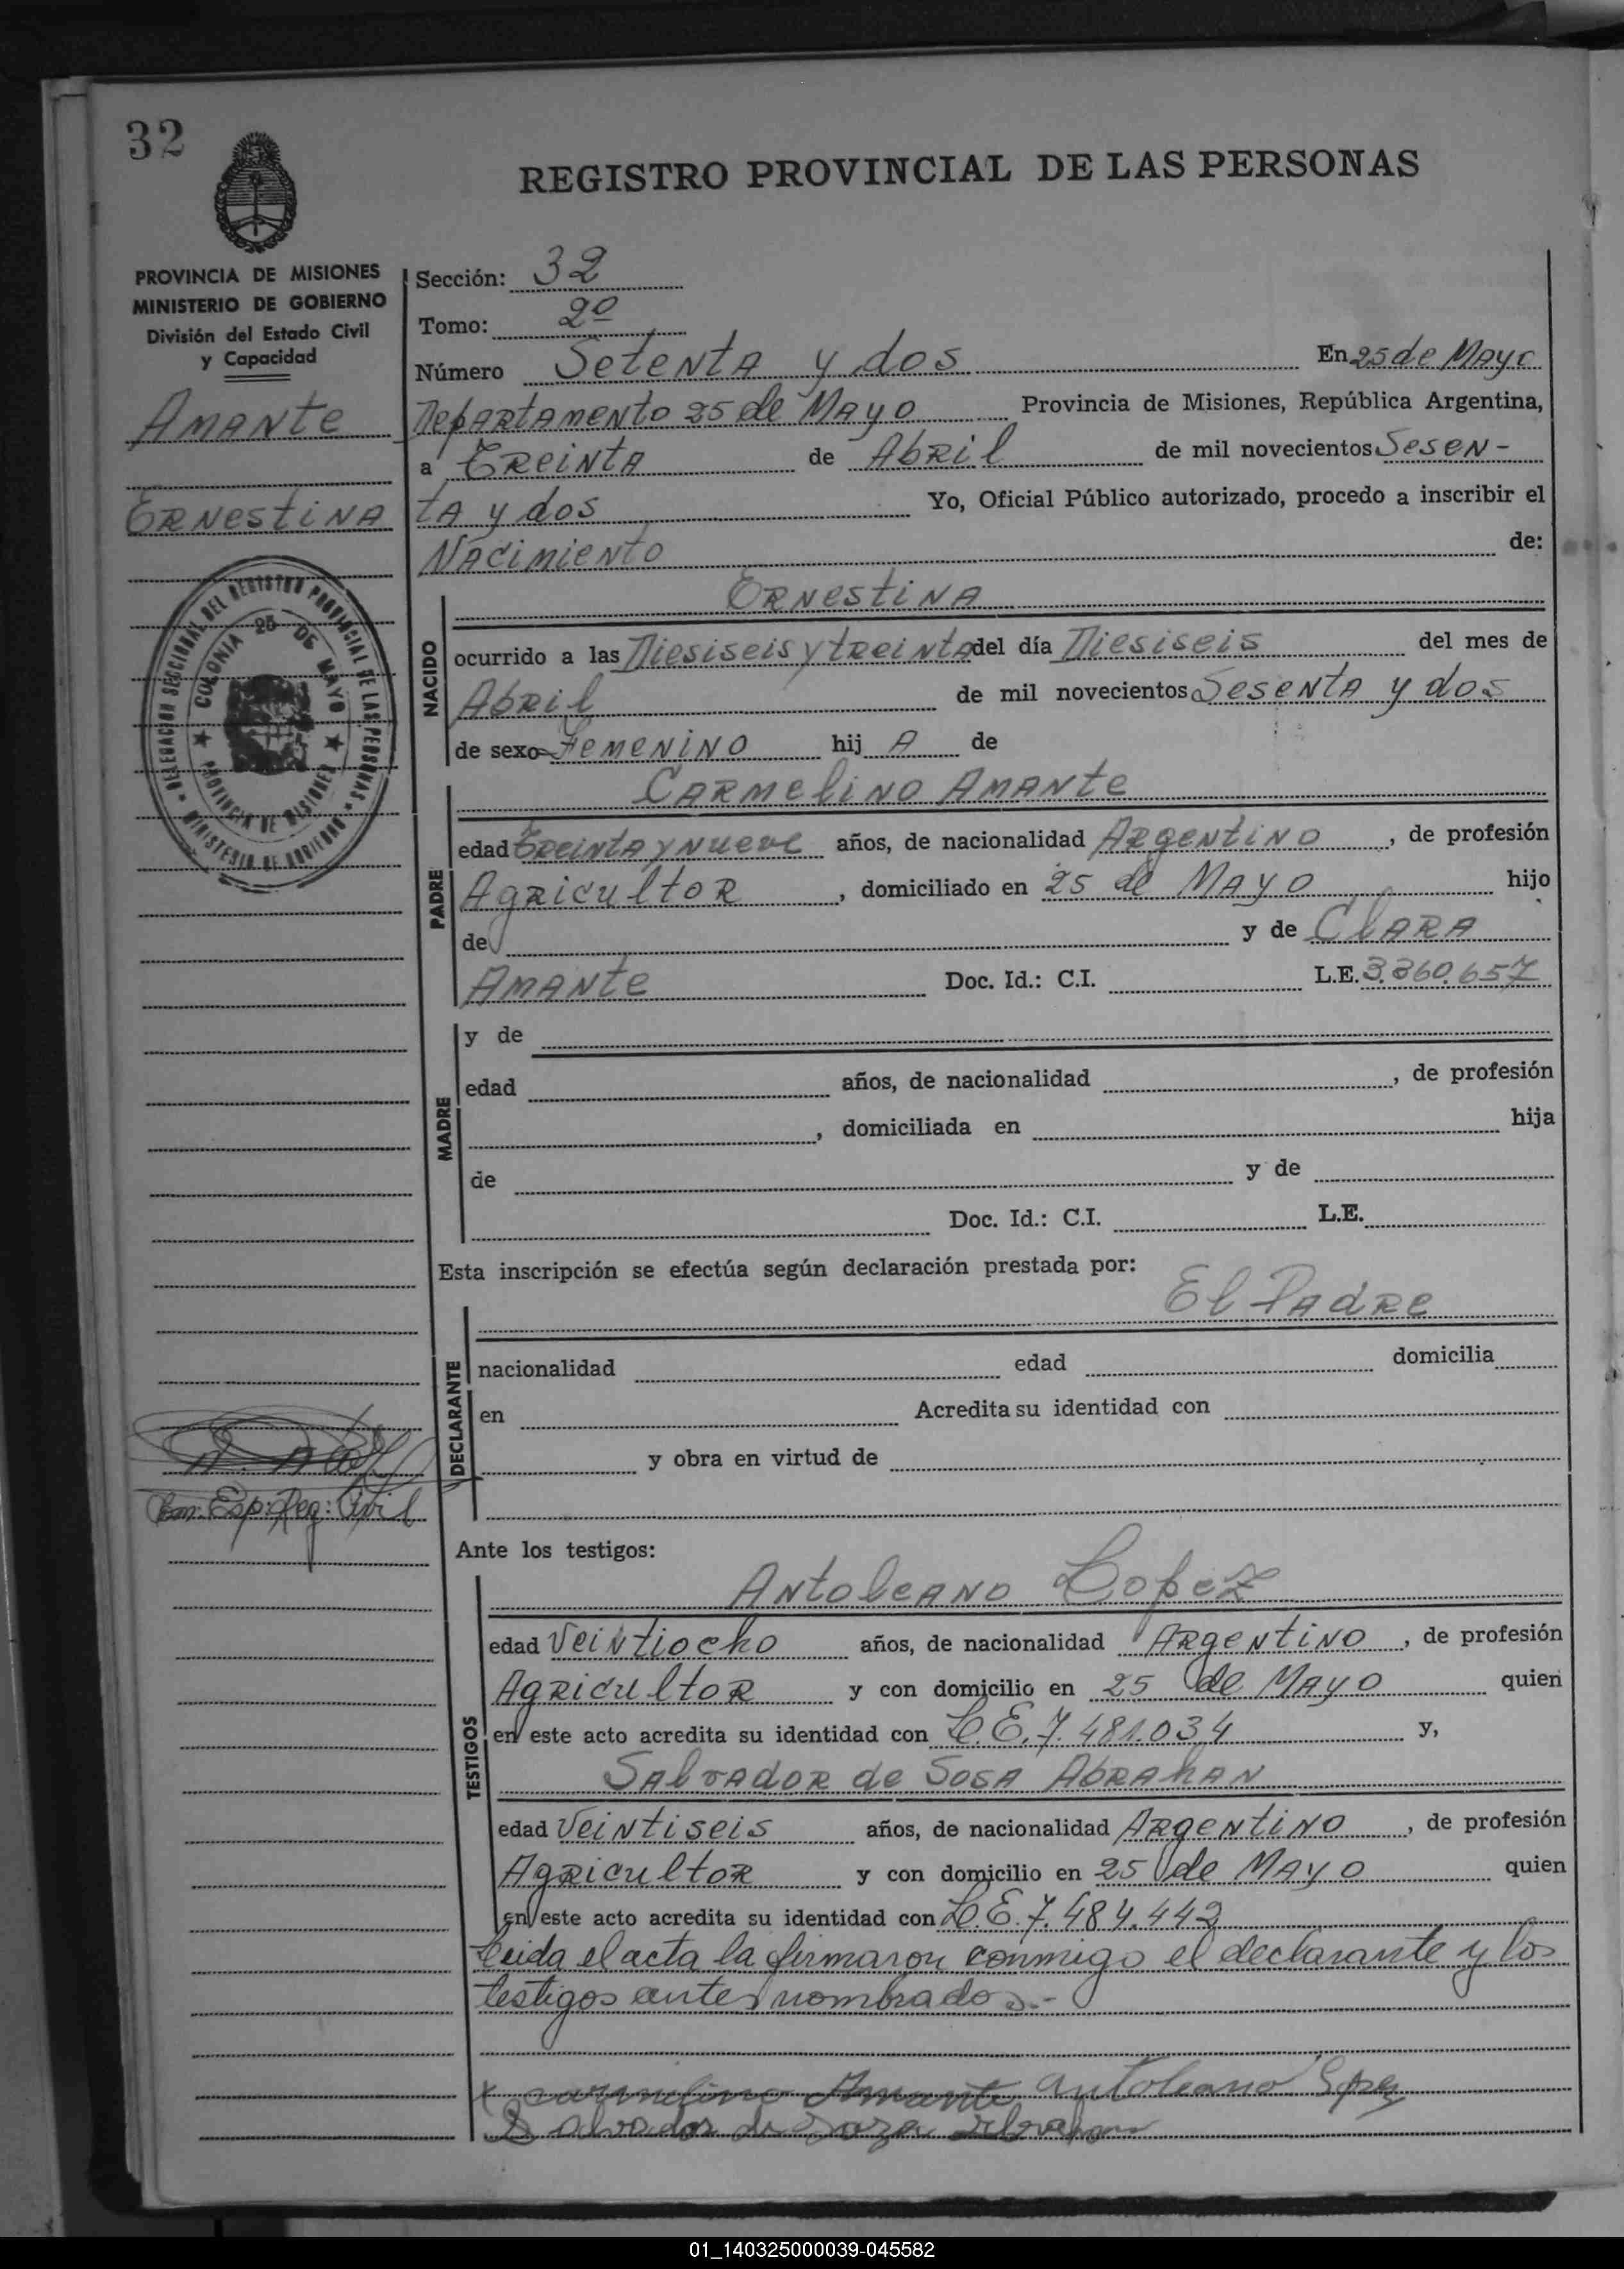 32
REGISTRO PROVINCIAL DE LAS PERSONAS
PROVINCIA DE MISIONES
MINISTERIO DE GOBIERNO
División del Estado Civil
y Capacidad
Amante
Ernestina
DELEGACION SECCIONAL DEL REGISTRO PROVINCIAL DE LAS PERSONAS
MINISTERIO DE GOBIERNO
COLONIA 25 DE MAYO
PROVINCIA DE MISIONES
Esp: Reg: Civil
Sección: 32
Tomo: 2º
Número Setenta y dos En 25 de Mayo
Departamento 25 de Mayo Provincia de Misiones, República Argentina,
a Treinta de Abril de mil novecientos Sesen-
ta y dos Yo, Oficial Público autorizado, procedo a inscribir el
Nacimiento de:
NACIDO
Ernestina
ocurrido a las Diesiseis y treinta del día Diesiseis del mes de
Abril de mil novecientos Sesenta y dos
de sexo Femenino hij A de
PADRE
Carmelino Amante
edad Treinta y nueve años, de nacionalidad Argentino, de profesión
Agricultor, domiciliado en 25 de Mayo hijo
de y de Clara
Amante Doc. Id.: C.I. L.E. 3.360.657
MADRE
y de
edad años, de nacionalidad , de profesión
, domiciliada en hija
de y de
Doc. Id.: C.I. L.E.
Esta inscripción se efectúa según declaración prestada por:
DECLARANTE
El Padre
nacionalidad edad domicilia
en Acredita su identidad con
y obra en virtud de
Ante los testigos:
TESTIGOS
Antoleano Lopez
edad Veintiocho años, de nacionalidad Argentino, de profesión
Agricultor y con domicilio en 25 de Mayo quien
en este acto acredita su identidad con L.E. 7.481.034 y,
Salvador de Sosa Abrahan
edad Veintiseis años, de nacionalidad Argentino, de profesión
Agricultor y con domicilio en 25 de Mayo quien
en este acto acredita su identidad con L.E. 7.484.442
Leida el acta la firmaron conmigo el declarante y los
testigos antes nombrados.-
x carmelino Amante Antoleano Lopez
Salvador de Soza Abrahan
01_140325000039-045582